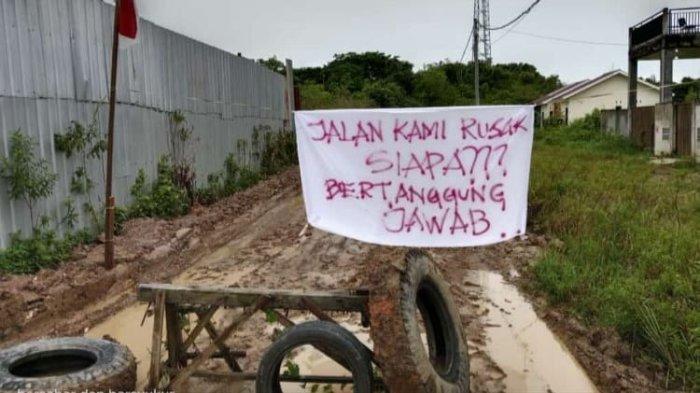 JALAN KAMI RUSAK
SIAPA???
BERTANGGUNG
JAWAB...